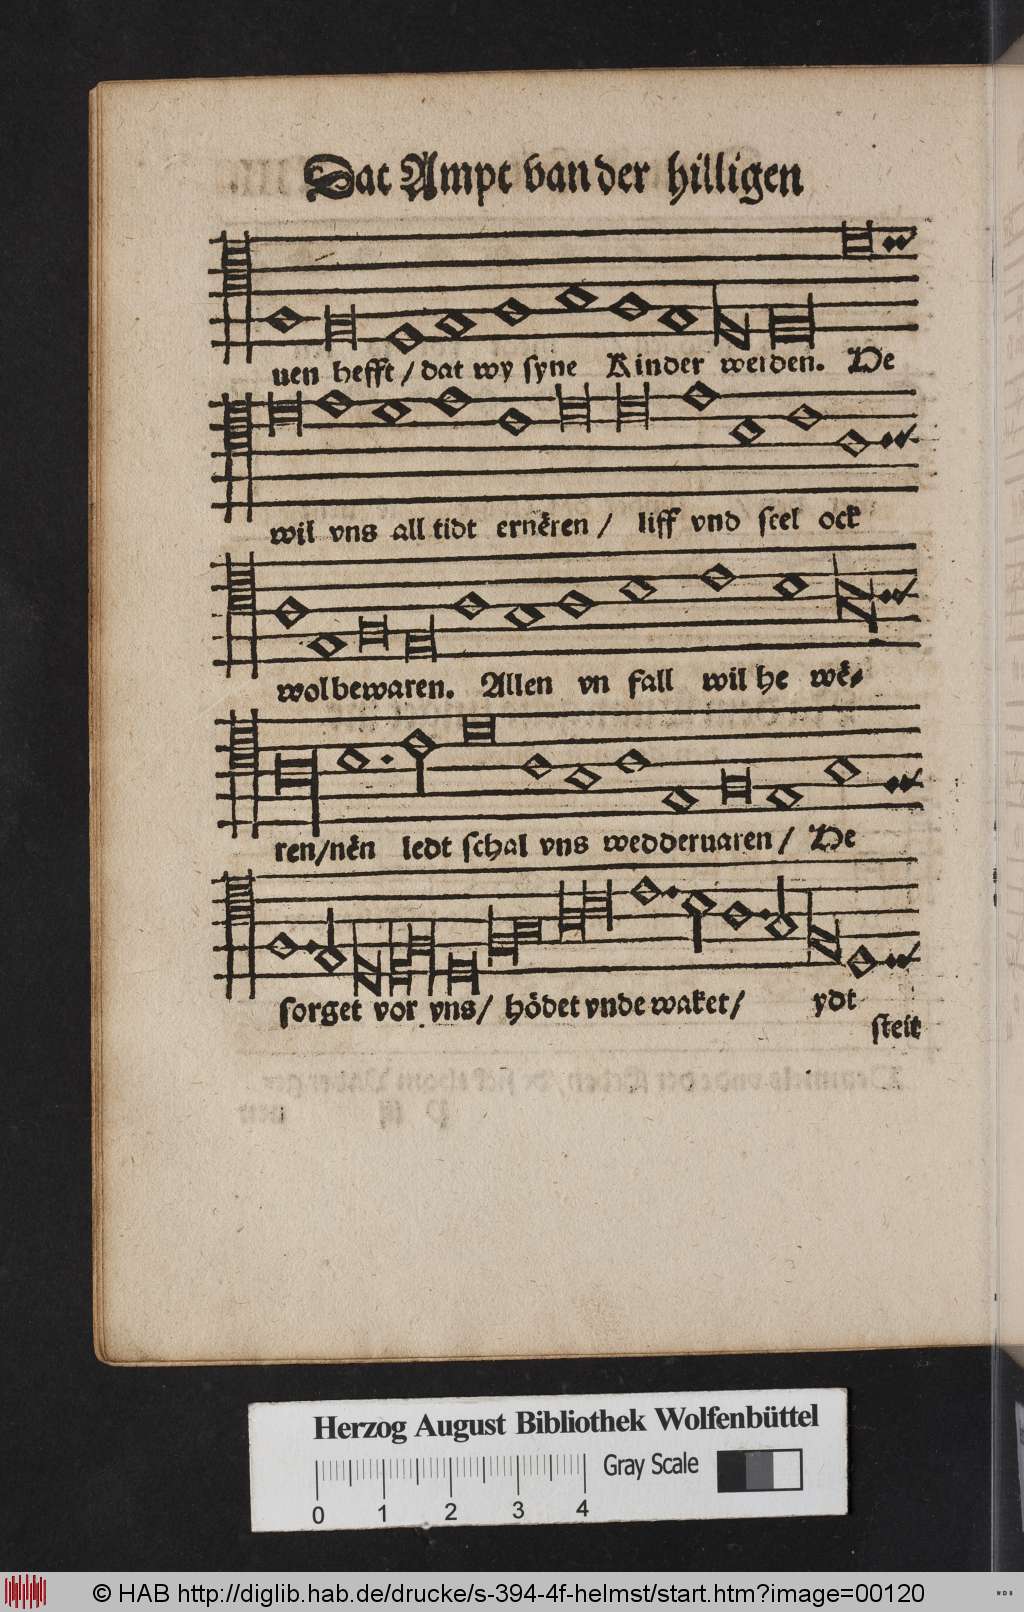 Dat Ampt van der hilligen
uen hefft / dat wy syne Kinder werden. He
wil vns all tidt ernēren / liff vnd seel ock
wol bewaren. Allen vn fall wil he wē⸗
ren / nēn ledt schal vns wedderuaren / He
sorget vor vns / hödet vnde waket / ydt
steit
Herzog August Bibliothek Wolfenbüttel
Gray Scale
0 1 2 3 4
© HAB http://diglib.hab.de/drucke/s-394-4f-helmst/start.htm?image=00120